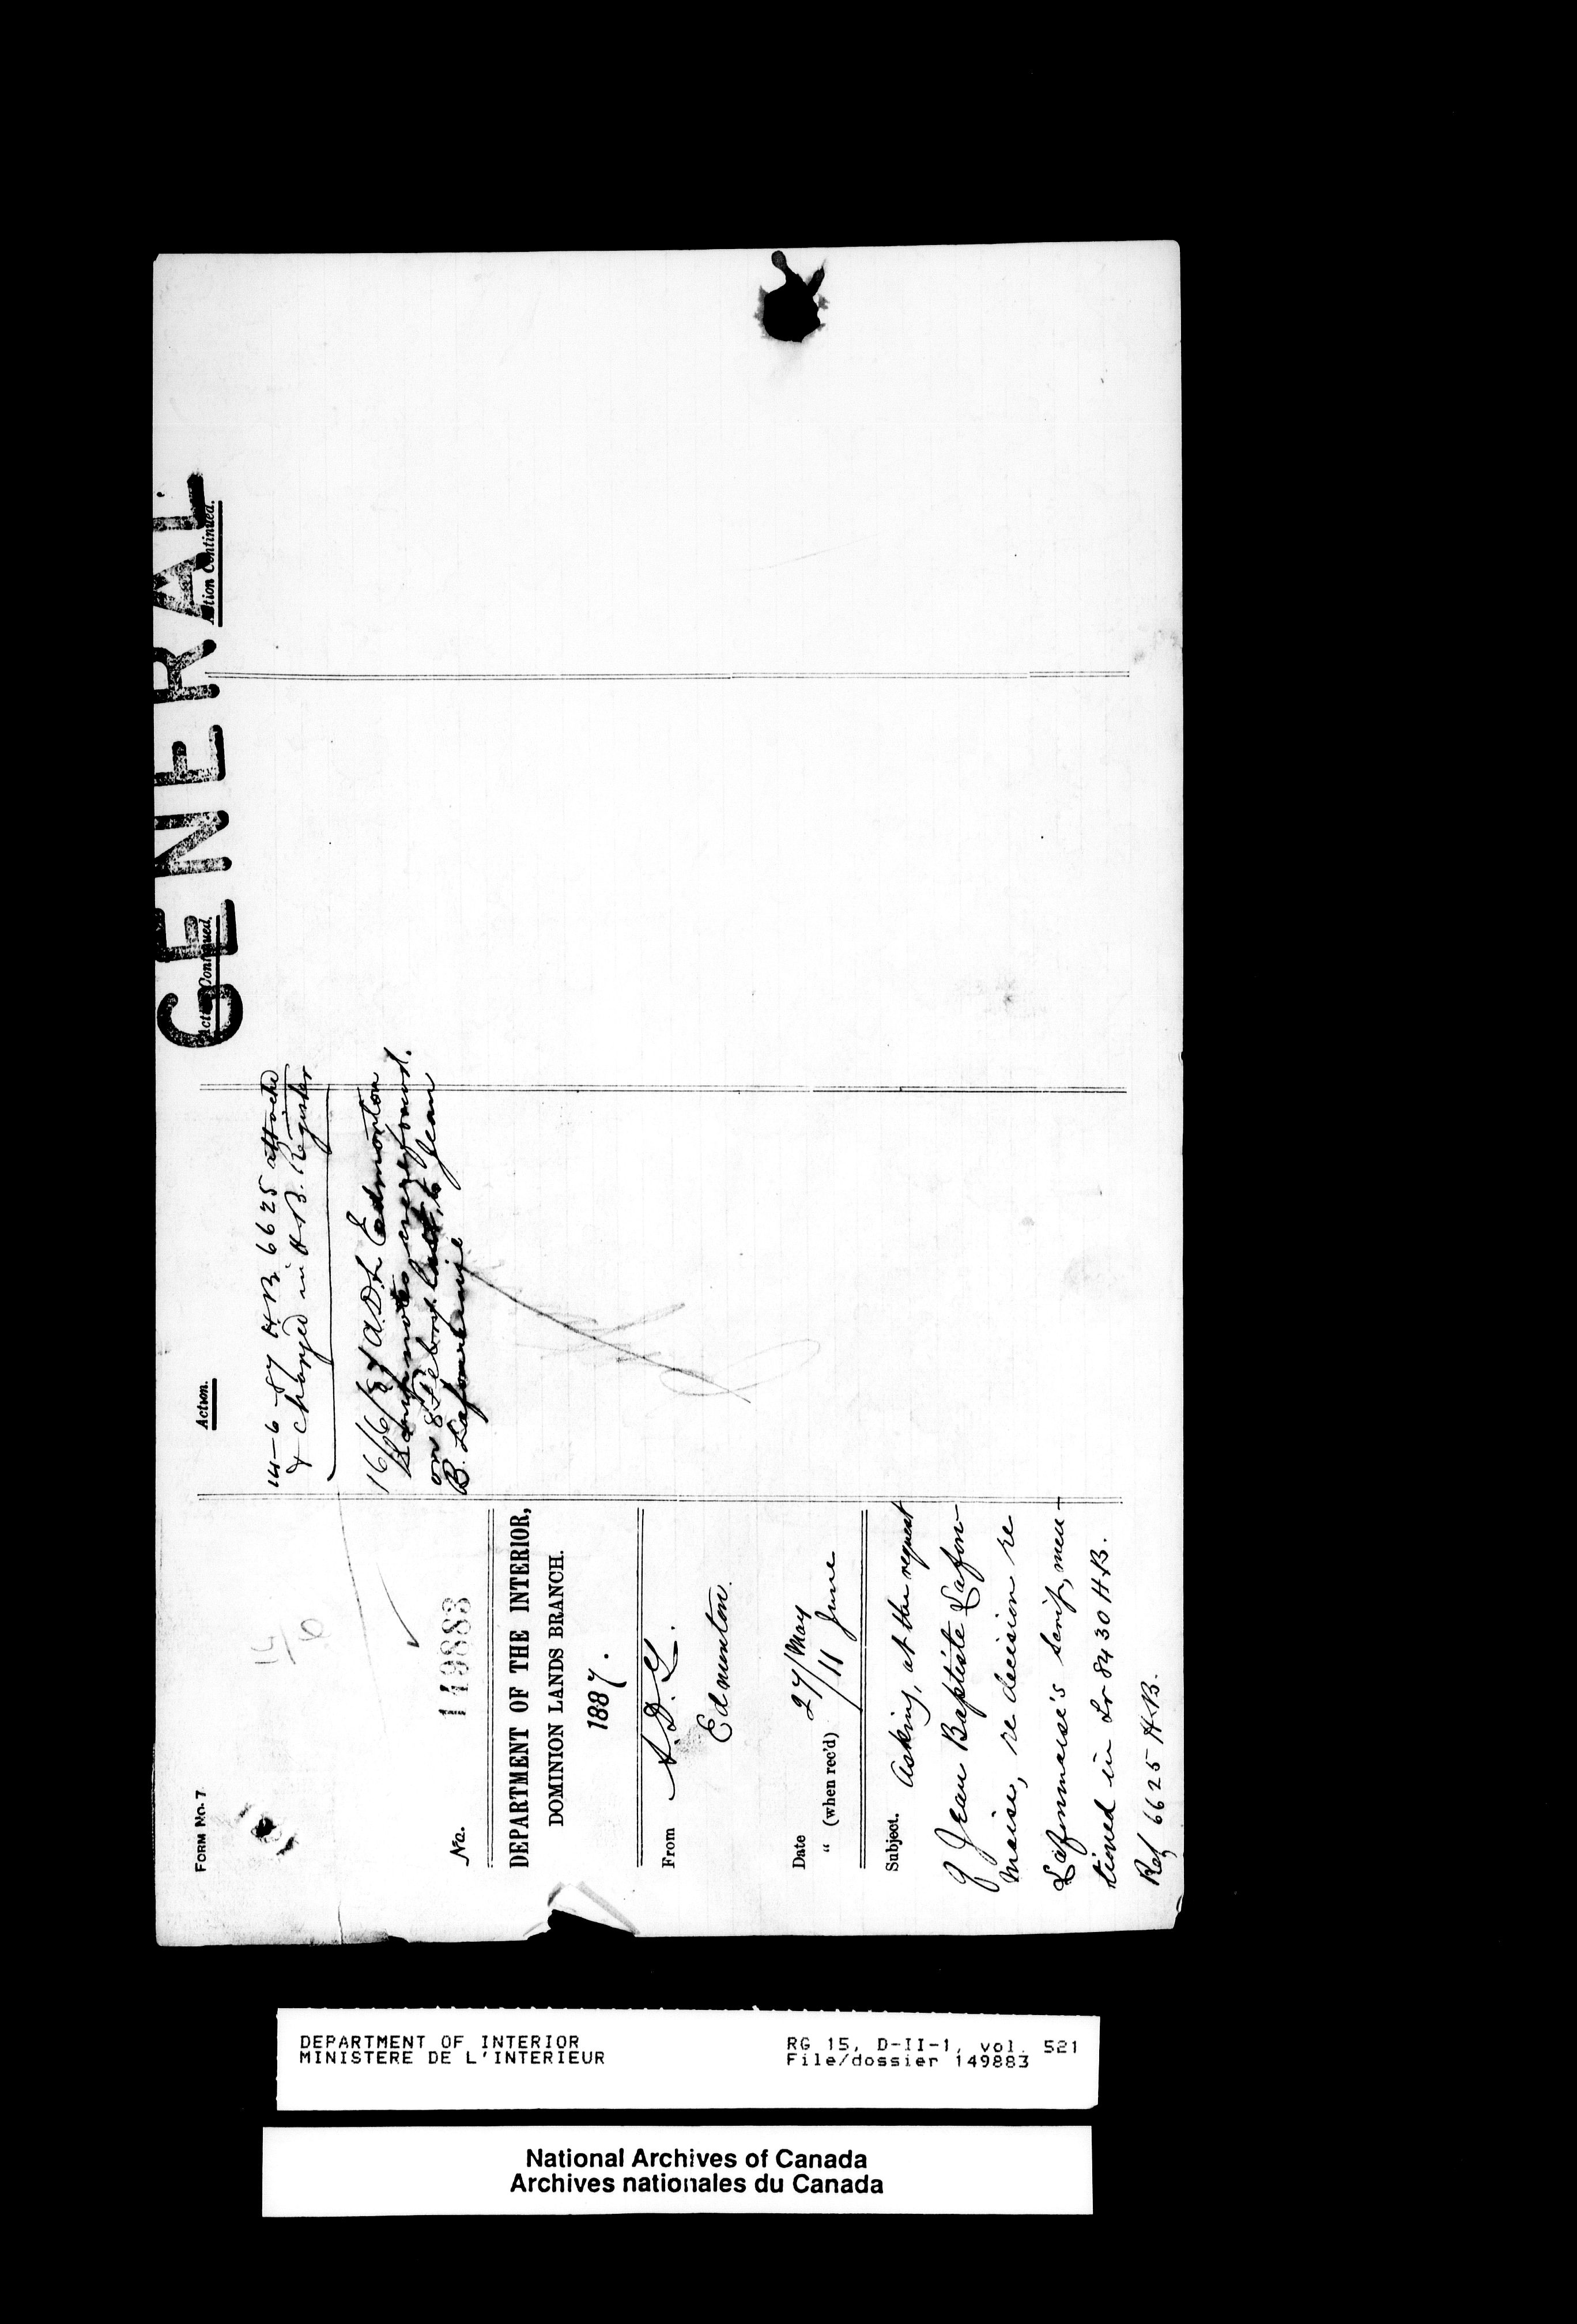 GENERAL
FORM No. 7
No. 149883
DEPARTMENT OF THE INTERIOR,
DOMINION LANDS BRANCH.
1887.
From A.D.L.
Edmonton
Date 27/May
" (when rec'd) 11 June
Subject. Asking, at the request
of Jean Baptiste Lafon
maise, re decision re
Lafonmaise's scrip, men-
tioned in Lr 8430 H.B.
Ref 6625 H.B.
Action.
14-6-87 H.B. 6625 attached
& charged in H.B. Register
16/6/87 A.D.L. Edmonton
Scrip notes were forward.
on 8 Febry last, to Jean
B.
Action Continued.
Action Continued.
DEPARTMENT OF INTERIOR
MINISTERE DE L'INTERIEUR
RG 15, D-II-1, vol. 521
File/dossier 149883
National Archives of Canada
Archives nationales du Canada